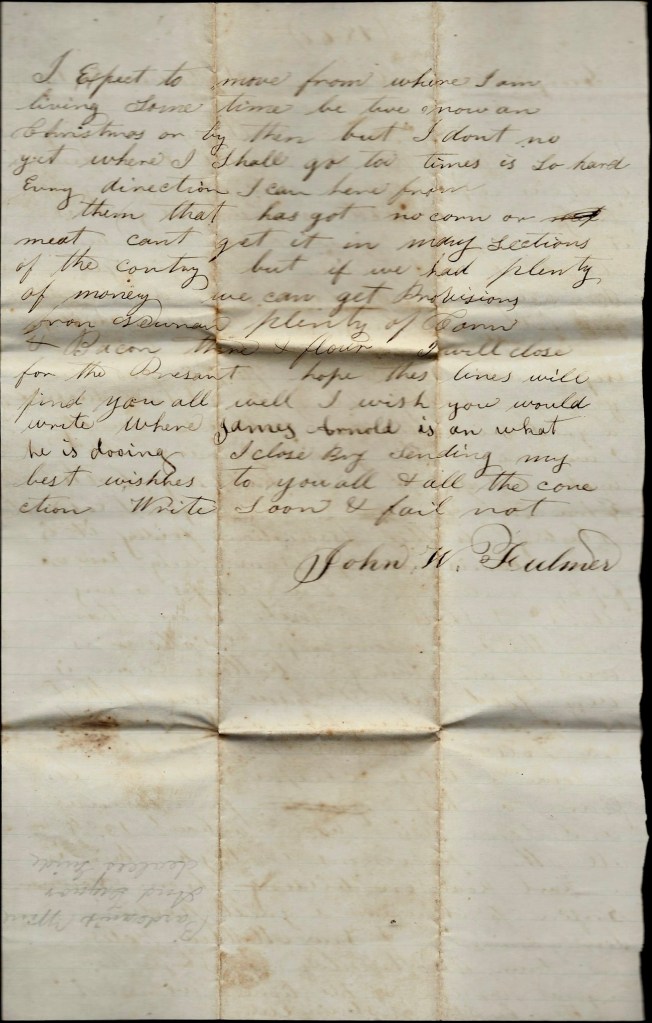 I Expect to move from where I am
living Some time be twe now an
Christmos or by then but I dont no
yet where I Shall go to times is So hard
Evry direction I can here from
them that has got no corn or
meat cant get it in many Sections
of the contry but if we had plenty
of money we can get Provisions
plenty of Corn
& Bacon & flour I will close
for the Presant hope thes lines will
find you all well I wish you would
write where James Arnold is an what
he is dooing I close By Sending my
best wishhes to you all & all the cone
ction Write Soon & fail not
John W. Fulmer